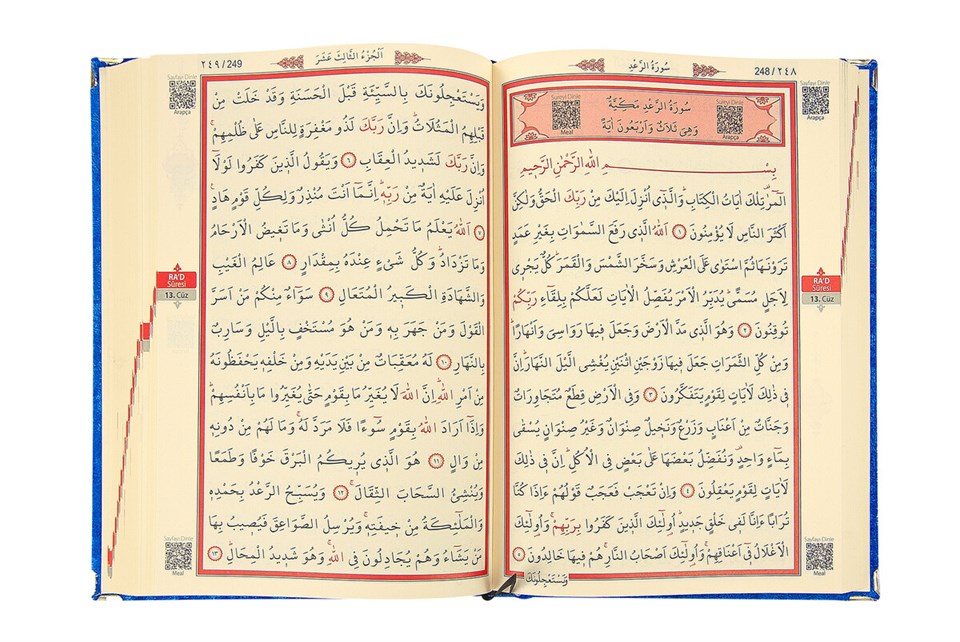 248/٢٤٨
سُورَةُ الرَّعْدِ
Sayfayı Dinle
Arapça
Sureyi Dinle
Meal
سُورَةُ الرَّعْدِ مَكِّيَّةٌ
وَهِيَ ثَلَاثٌ وَاَرْبَعُونَ اٰيَةً
Sureyi Dinle
Arapça
بِسْمِ اللّٰهِ الرَّحْمٰنِ الرَّحِيمِ
الٓمٓرٰ تِلْكَ اٰيَاتُ الْكِتَابِ وَالَّذٖٓى اُنْزِلَ اِلَيْكَ مِنْ رَبِّكَ الْحَقُّ وَلٰكِنَّ
اَكْثَرَ النَّاسِ لَا يُؤْمِنُونَ ١ اَللّٰهُ الَّذٖى رَفَعَ السَّمٰوَاتِ بِغَيْرِ عَمَدٍ
تَرَوْنَهَا ثُمَّ اسْتَوٰى عَلَى الْعَرْشِ وَسَخَّرَ الشَّمْسَ وَالْقَمَرَ كُلٌّ يَجْرٖى
لِاَجَلٍ مُسَمًّى يُدَبِّرُ الْاَمْرَ يُفَصِّلُ الْاٰيَاتِ لَعَلَّكُمْ بِلِقَٓاءِ رَبِّكُمْ
تُوقِنُونَ ٢ وَهُوَ الَّذٖى مَدَّ الْاَرْضَ وَجَعَلَ فٖيهَا رَوَاسِىَ وَاَنْهَارًا
وَمِنْ كُلِّ الثَّمَرَاتِ جَعَلَ فٖيهَا زَوْجَيْنِ اثْنَيْنِ يُغْشِى الَّيْلَ النَّهَارَ اِنَّ
فٖى ذٰلِكَ لَاٰيَاتٍ لِقَوْمٍ يَتَفَكَّرُونَ ٣ وَفِى الْاَرْضِ قِطَعٌ مُتَجَاوِرَاتٌ
وَجَنَّاتٌ مِنْ اَعْنَابٍ وَزَرْعٌ وَنَخٖيلٌ صِنْوَانٌ وَغَيْرُ صِنْوَانٍ يُسْقٰى
بِمَٓاءٍ وَاحِدٍ وَنُفَضِّلُ بَعْضَهَا عَلٰى بَعْضٍ فِى الْاُكُلِ اِنَّ فٖى ذٰلِكَ
لَاٰيَاتٍ لِقَوْمٍ يَعْقِلُونَ ٤ وَاِنْ تَعْجَبْ فَعَجَبٌ قَوْلُهُمْ ءَاِذَا كُنَّا
تُرَابًا ءَاِنَّا لَفٖى خَلْقٍ جَدٖيدٍ اُولٰٓئِكَ الَّذٖينَ كَفَرُوا بِرَبِّهِمْ وَاُولٰٓئِكَ
الْاَغْلَالُ فٖٓى اَعْنَاقِهِمْ وَاُولٰٓئِكَ اَصْحَابُ النَّارِ هُمْ فٖيهَا خَالِدُونَ ٥
وَيَسْتَعْجِلُونَكَ
RA'D
Sûresi
13. Cüz
Sayfayı Dinle
Meal
٢٤٩/249
اَلْجُزْءُ الثَّالِثَ عَشَرَ
Sayfayı Dinle
Arapça
وَيَسْتَعْجِلُونَكَ بِالسَّيِّئَةِ قَبْلَ الْحَسَنَةِ وَقَدْ خَلَتْ مِنْ
قَبْلِهِمُ الْمَثُلَاتُ وَاِنَّ رَبَّكَ لَذُو مَغْفِرَةٍ لِلنَّاسِ عَلٰى ظُلْمِهِمْ
وَاِنَّ رَبَّكَ لَشَدٖيدُ الْعِقَابِ ٦ وَيَقُولُ الَّذٖينَ كَفَرُوا لَوْلَٓا
اُنْزِلَ عَلَيْهِ اٰيَةٌ مِنْ رَبِّهٖ اِنَّمَٓا اَنْتَ مُنْذِرٌ وَلِكُلِّ قَوْمٍ هَادٍ
٧ اَللّٰهُ يَعْلَمُ مَا تَحْمِلُ كُلُّ اُنْثٰى وَمَا تَغٖيضُ الْاَرْحَامُ
وَمَا تَزْدَادُ وَكُلُّ شَىْءٍ عِنْدَهُ بِمِقْدَارٍ ٨ عَالِمُ الْغَيْبِ
وَالشَّهَادَةِ الْكَبٖيرُ الْمُتَعَالِ ٩ سَوَٓاءٌ مِنْكُمْ مَنْ اَسَرَّ
الْقَوْلَ وَمَنْ جَهَرَ بِهٖ وَمَنْ هُوَ مُسْتَخْفٍ بِالَّيْلِ وَسَارِبٌ
بِالنَّهَارِ ١٠ لَهُ مُعَقِّبَاتٌ مِنْ بَيْنِ يَدَيْهِ وَمِنْ خَلْفِهٖ يَحْفَظُونَهُ
مِنْ اَمْرِ اللّٰهِ اِنَّ اللّٰهَ لَا يُغَيِّرُ مَا بِقَوْمٍ حَتّٰى يُغَيِّرُوا مَا بِاَنْفُسِهِمْ
وَاِذَٓا اَرَادَ اللّٰهُ بِقَوْمٍ سُٓوءًا فَلَا مَرَدَّ لَهُ وَمَا لَهُمْ مِنْ دُونِهٖ
مِنْ وَالٍ ١١ هُوَ الَّذٖى يُرٖيكُمُ الْبَرْقَ خَوْفًا وَطَمَعًا
وَيُنْشِئُ السَّحَابَ الثِّقَالَ ١٢ وَيُسَبِّحُ الرَّعْدُ بِحَمْدِهٖ
وَالْمَلٰٓئِكَةُ مِنْ خٖيفَتِهٖ وَيُرْسِلُ الصَّوَاعِقَ فَيُصٖيبُ بِهَا
مَنْ يَشَٓاءُ وَهُمْ يُجَادِلُونَ فِى اللّٰهِ وَهُوَ شَدٖيدُ الْمِحَالِ ١٣
RA'D
Sûresi
13. Cüz
Sayfayı Dinle
Meal